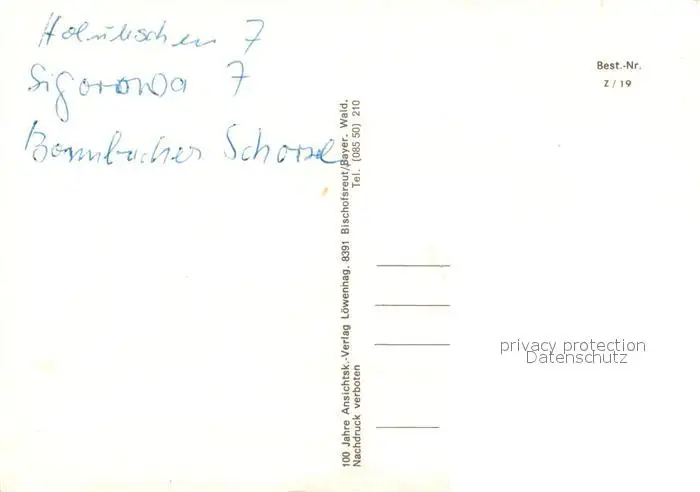 Holubschen 7
Sigorowa 7
Bornbacher Schorsch
Best.-Nr.
Z / 19
100 Jahre Ansichtsk.-Verlag Löwenhag, 8391 Bischofsreut/Bayer. Wald.
Nachdruck verboten Tel. (085 50) 210
privacy protection
Datenschutz